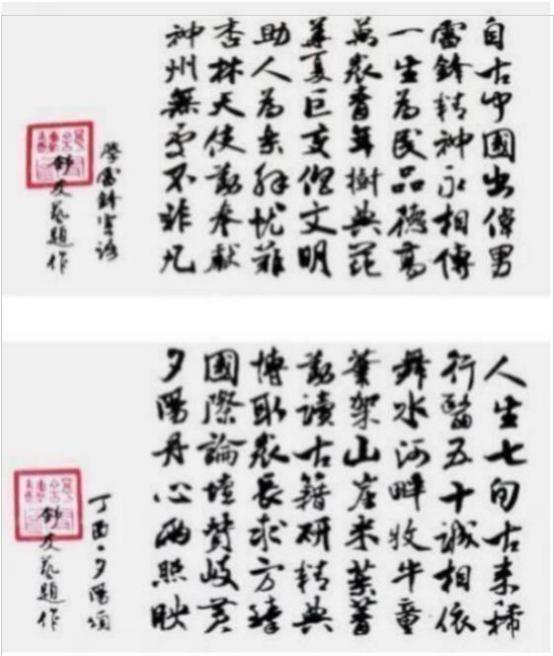 自古中國出偉男
雷鋒精神永相傳
一生為民品德高
萬衆青年樹典范
華夏巨变促文明
助人為樂解忧难
杏林天使勤奉獻
神州無處不非凡
學雷鋒寄語
舒友藝題作
人生七旬古来稀
行醫五十誠相依
舞水河畔牧牛童
架山崖采葉
勤讀古籍研精典
博取衆長求方臻
國際論壇贊岐黃
夕陽丹心両照映
丁酉·夕陽頌
舒友藝題作